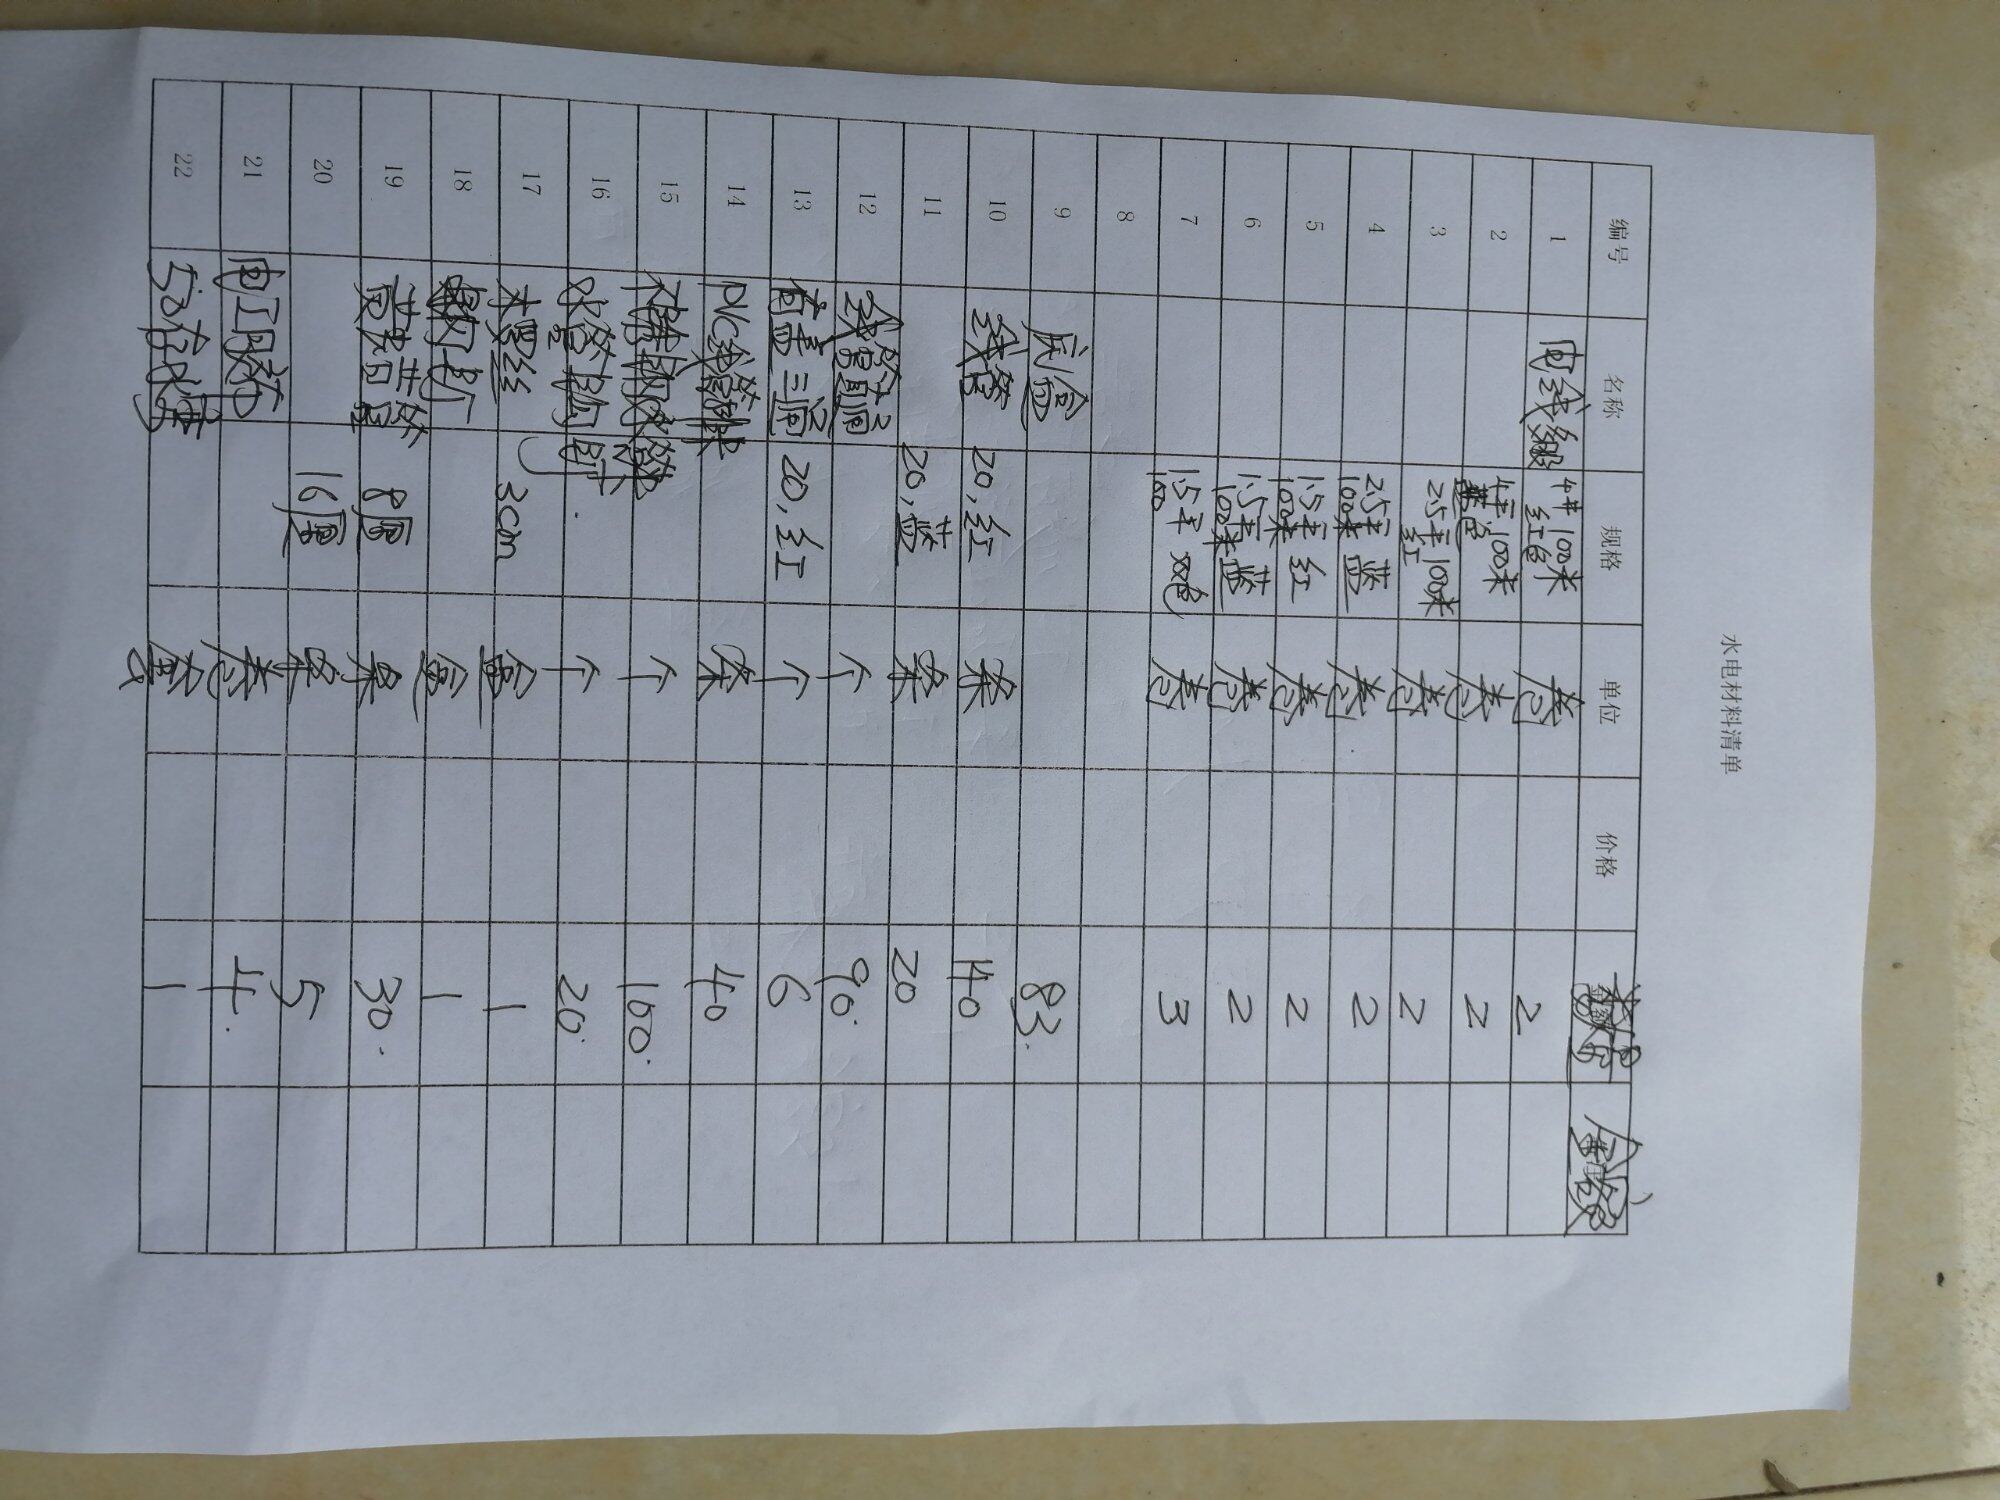 水电材料清单
编号 名称 规格 单位 价格 数量 金额
1 电线 4平 100米 红色 卷 2
2 4平 100米 蓝色 卷 2
3 2.5平 100米 红 卷 2
4 2.5平 蓝 100米 卷 2
5 1.5平 红 100米 卷 2
6 1.5平 蓝 100米 卷 2
7 1.5平 双色 100 卷 3
8
9 底盒 83.
10 线管 20,红 条 140
11 20,蓝 条 20
12 个 90.
13 有盖三通 20,红 个 6
14 PVC线管 条 40
15 个 100.
16 水管 个 20.
17 木螺丝 3cm 盒 1
18 盒 1
19 黄蜡管 8厘 条 30.
20 16厘 条 5
21 电工胶布 卷 4.
22 50 1